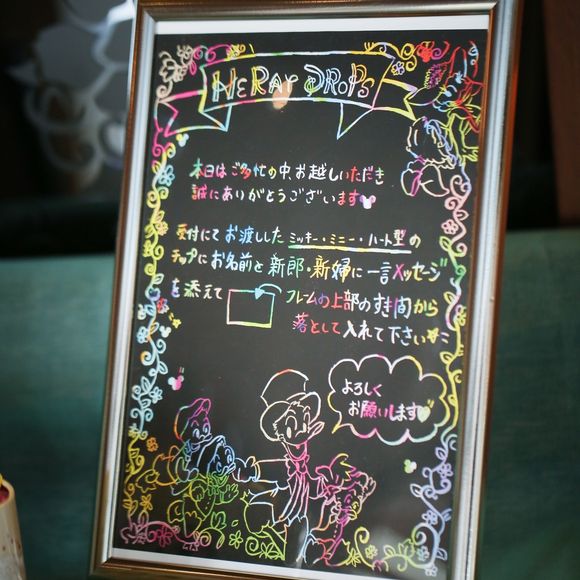 HERAY DROPS
本日はご多忙の中、お越しいただき
誠にありがとうございます
受付にてお渡ししたミッキー・ミニー・ハート型の
チップにお名前と新郎・新婦に一言メッセージ
を添えて フレームの上部のすき間から
落として入れて下さい
よろしく
お願いします